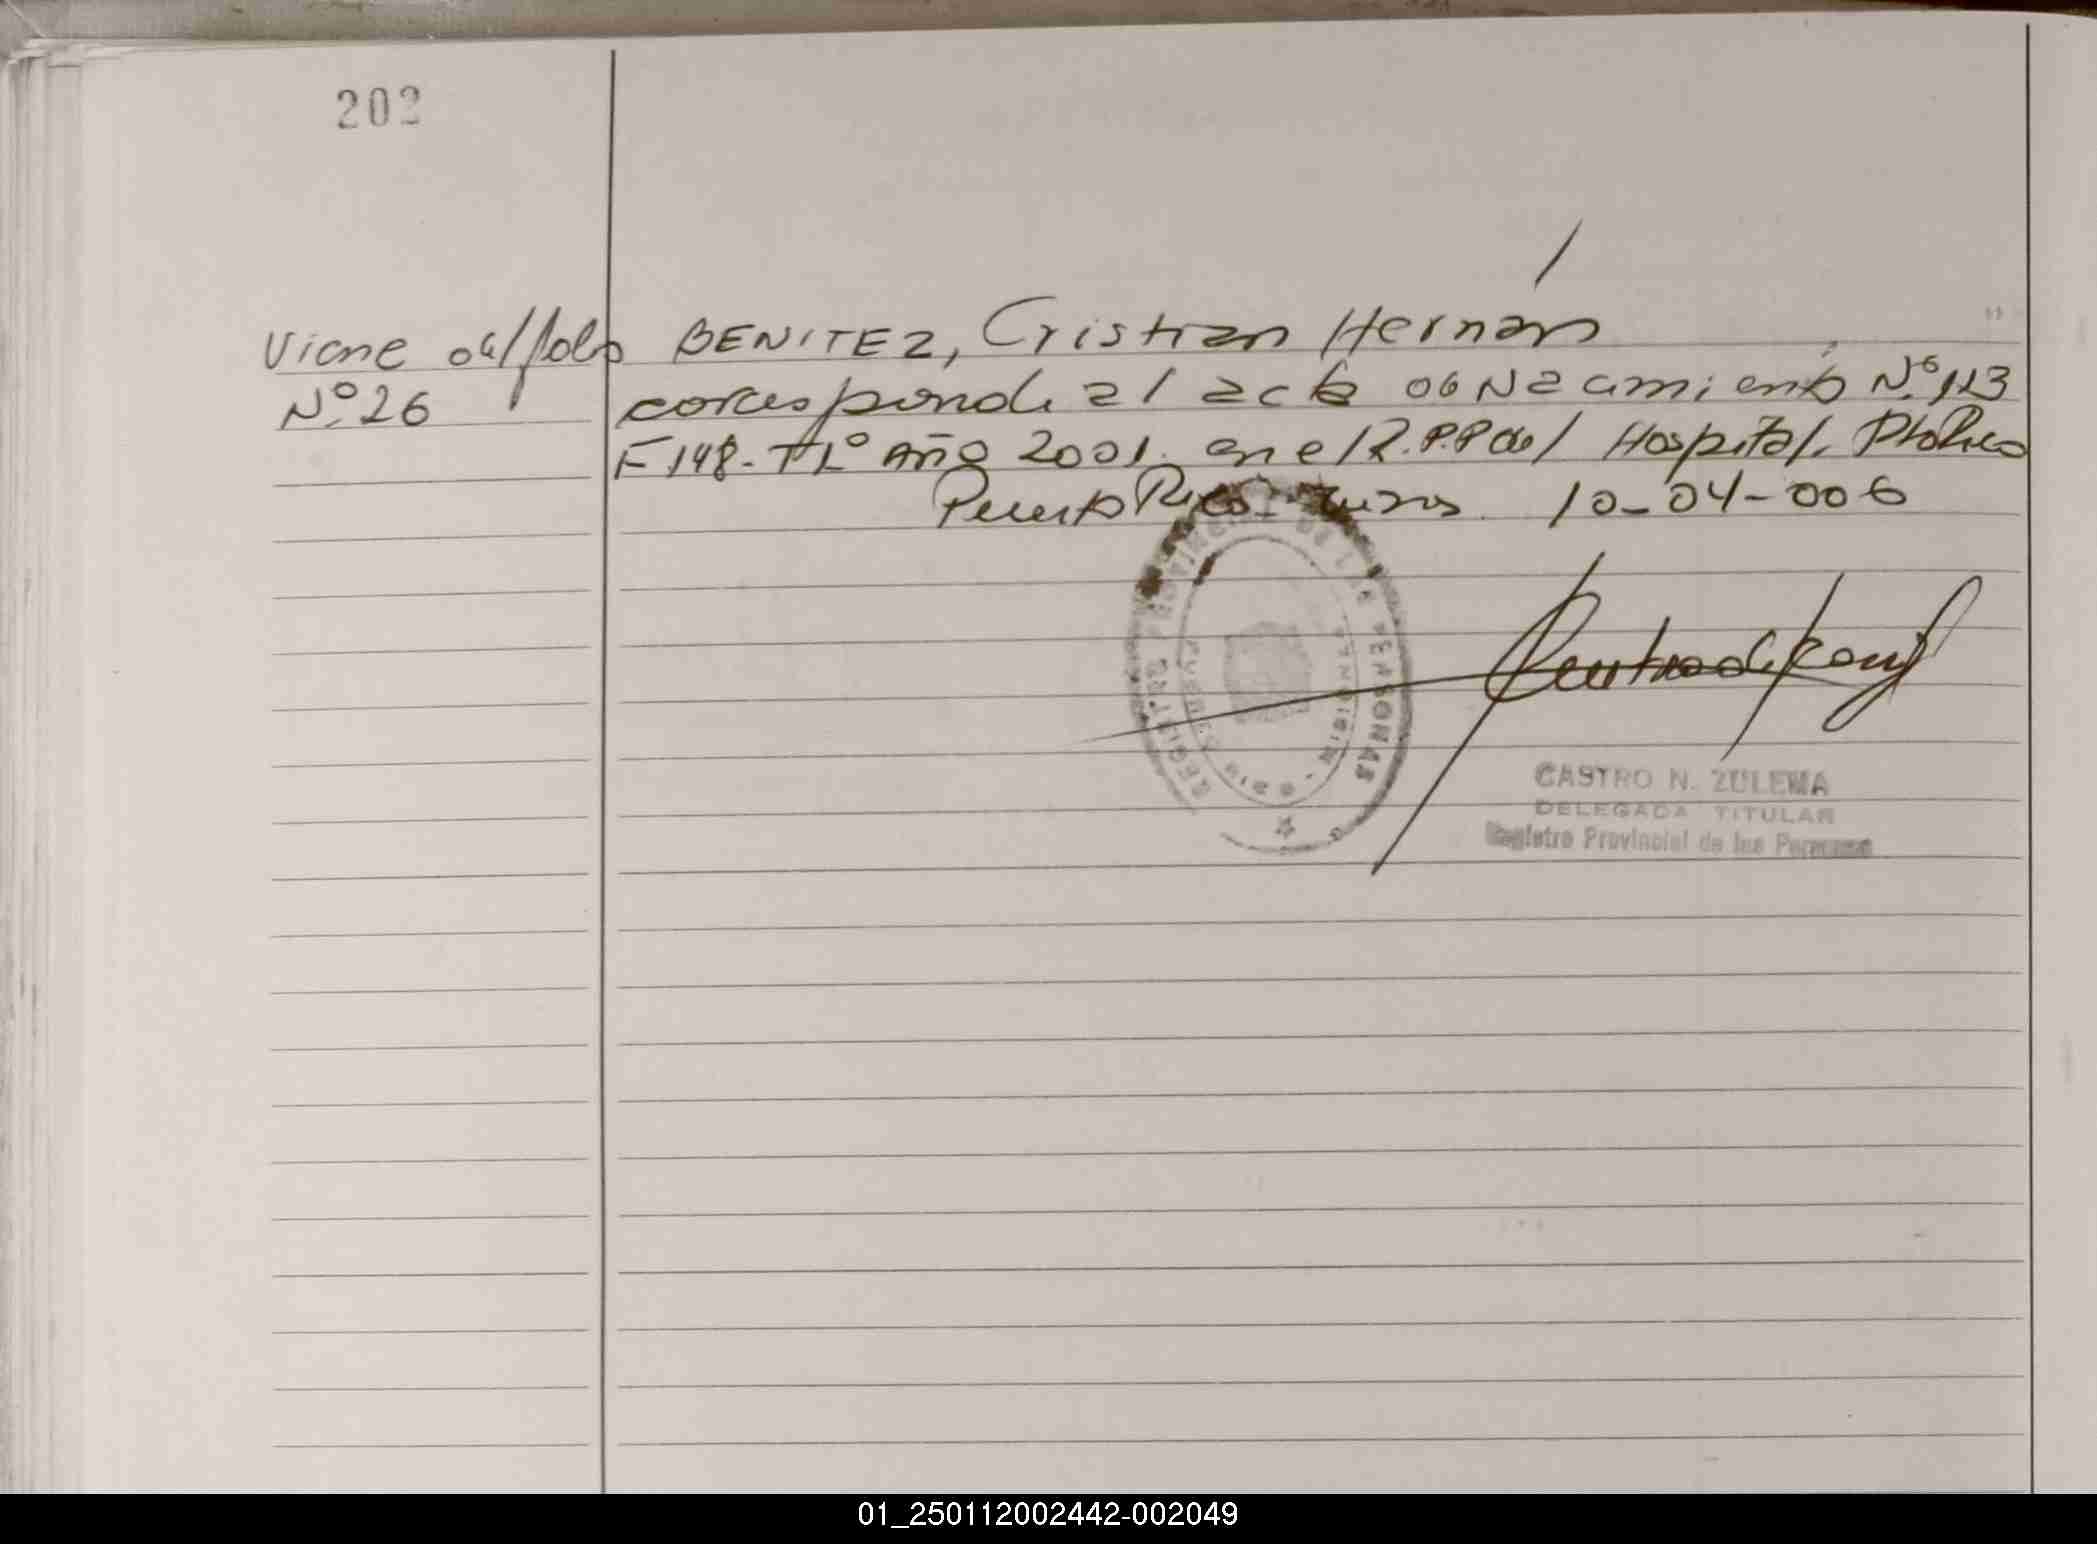 202
Viene del folio BENITEZ, Cristian Hernán
Nº 26 corresponde al acta de Nacimiento Nº 113
F 148 - T 1º Año 2001. en el R.P.P del Hospital. Pto Rico
Puerto Rico 10-04-006
REGISTRO PROVINCIAL DE LAS PERSONAS
CASTRO N. ZULEMA
DELEGADA TITULAR
Registro Provincial de las Personas
01_250112002442-002049